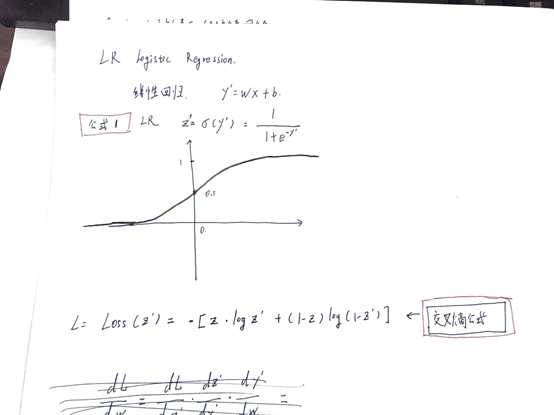 LR Logistic Regression.
线性回归. y'=wx+b.
公式1 LR z'=σ(y') = 1/(1+e^-y')
1
0.5
0.
L= Loss(z') = -[z·log z' + (1-z)log(1-z')] ← 交叉熵公式
dL/dw = dL/dz' · dz'/dy' · dy'/dw =